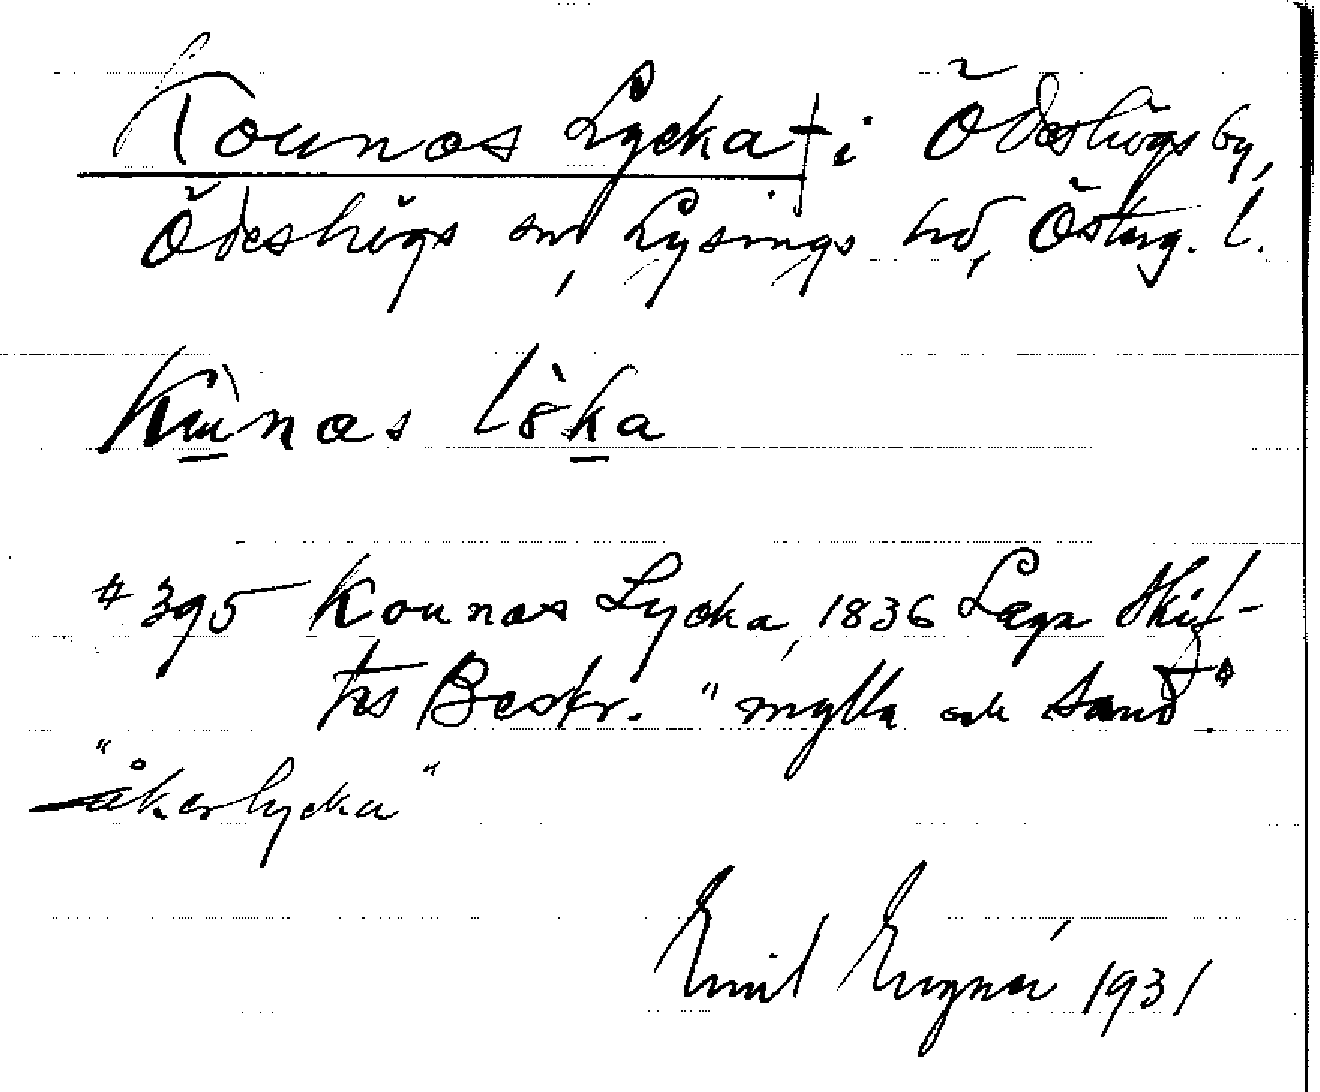 Kounos Lycka † i Ödeshögs by,
Ödeshögs sn, Lysings hd, Österg. l.
Kùnas lò̀ka
# 395 Kounos Lycka, 1836 Laga Skif-
tes Beskr. "mylla och sand"
"åkerlycka"
Emil 1931